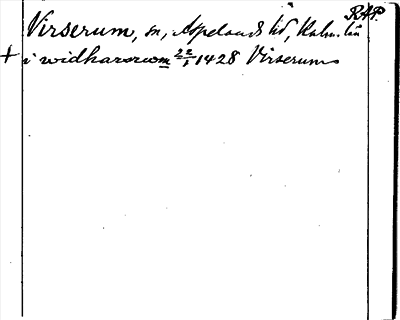 RAP.
Virserum, sn, Aspelands hd, Kalm. län
+ i widharoswm 22/1 1428 Virserums